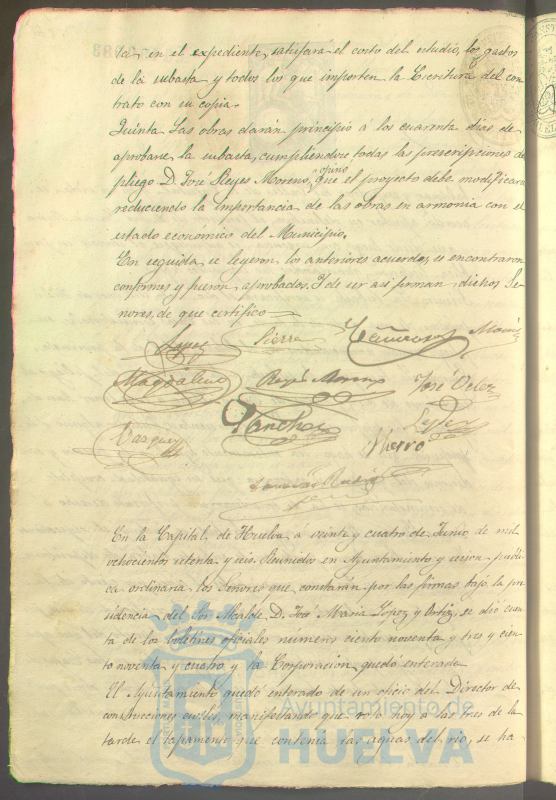 ta en el expediente, satisfara el costo del estudio, los gastos
de la subasta y todos los que importen la Escritura del con
trato con su copia.
Quinta Las obras darán principio á los cuarenta dias de
aprobarse la subasta, cumpliendose todas las prescripciones del
pliego. D. José Reyes Moreno, opinó que el proyecto debe modificarse
reduciendo la importancia de las obras en armonia con el
estado económico del Municipio.
En seguida se leyeron los anteriores acuerdos, se encontraron
conformes y fueron aprobados. Y de ser asi firman dichos Se
ñores, de que certifico
Lopez Sierra
Magdaleno Reyes Moreno José Velez
Vazquez Sanchez
Hierro
En la Capital de Huelva á veinte y cuatro de Junio de mil
ochocientos setenta y seis. Reunidos en Ayuntamiento y sesion publi
ca ordinaria los Señores que constarán por las firmas bajo la pre
sidencia del Sor. Alcalde D. José Maria Lopez y Ortiz, se dió cuen
ta de los boletines oficiales numero ciento noventa y tres y cien
to noventa y cuatro y la Corporacion quedó enterada
El Ayuntamiento quedó enterado de un oficio del Director de
construcciones civiles, manifestando que roto hoy á las tres de la
tarde el tapamento que contenia las aguas del rio, se ha
Ayuntamiento de
HUELVA